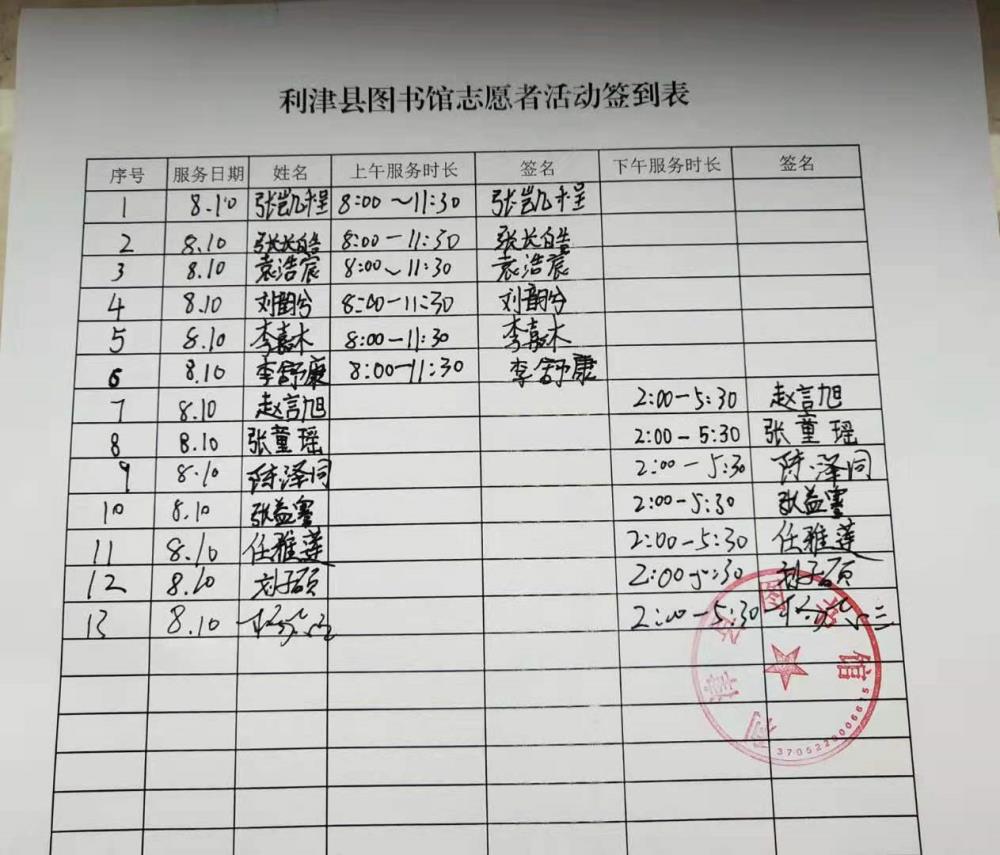 利津县图书馆志愿者活动签到表
序号 服务日期 姓名 上午服务时长 签名 下午服务时长 签名
1 8.10 张凯程 8:00～11:30 张凯程
2 8.10 张长皓 8:00-11:30 张长皓
3 8.10 袁浩宸 8:00～11:30 袁浩宸
4 8.10 刘韵兮 8:00-11:30 刘韵兮
5 8.10 李嘉木 8:00-11:30 李嘉木
6 8.10 李舒康 8:00-11:30 李舒康
7 8.10 赵言旭 2:00-5:30 赵言旭
8 8.10 张童瑶 2:00-5:30 张童瑶
9 8.10 陈泽同 2:00-5:30 陈泽同
10 8.10 张益 2:00-5:30 张益
11 8.10 任雅莲 2:00-5:30 任雅莲
12 8.10 刘子硕 2:00-5:30 刘子硕
13 8.10 2:00-5:30
利津县图书馆
3705220006615